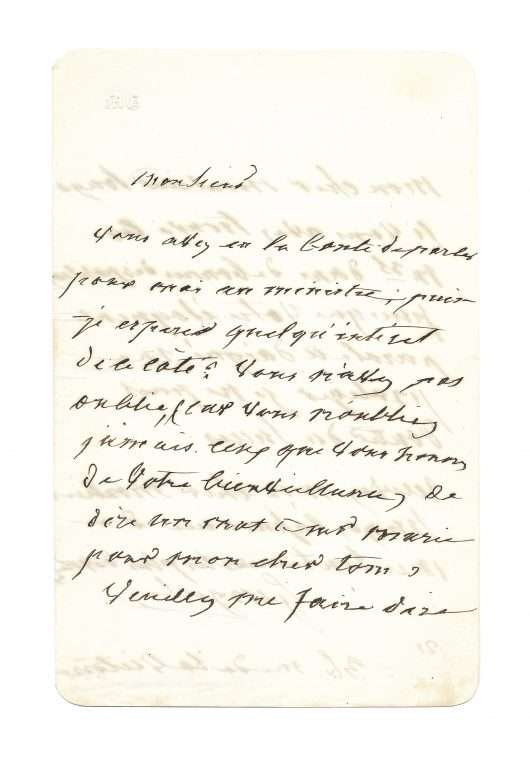 Monsieur
Vous avez eu la bonté de parler
pour moi au ministre; puis
je esperer quelqu'intéret
de ce côté? Vous n'avez pas
oublié, car vous n'oubliez
jamais ceux que vous honorez
de votre bienveillance, de
dire un mot à
pour mon cher
Veuillez me faire dire